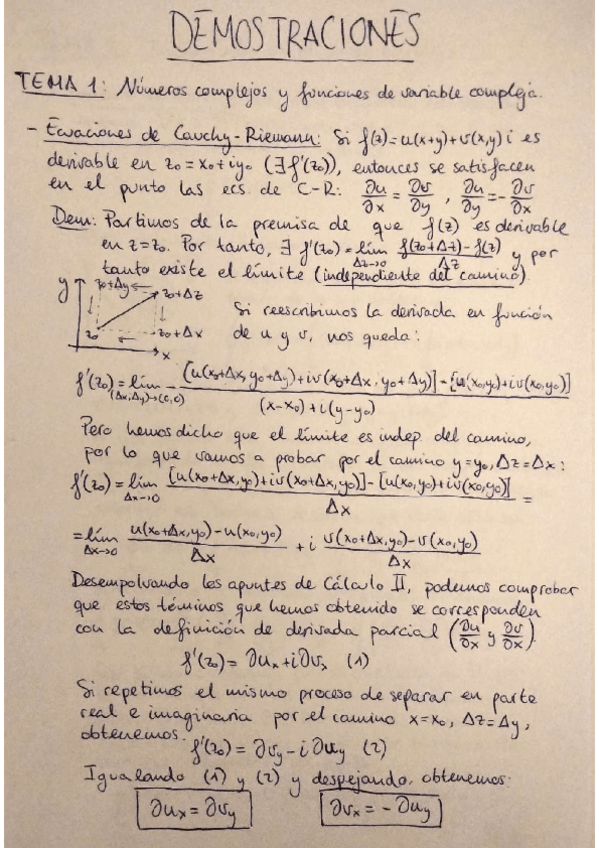 DEMOSTRACIONES
TEMA 1: Números complejos y funciones de variable compleja.
- Ecuaciones de Cauchy-Riemann: Si f(z)=u(x+y)+v(x,y)i es
derivable en z₀=x₀+iy₀ (∃f'(z₀)), entonces se satisfacen
en el punto las ecs. de C-R: ∂u/∂x = ∂v/∂y , ∂u/∂y = -∂v/∂x
Dem: Partimos de la premisa de que f(z) es derivable
en z=z₀. Por tanto, ∃ f'(z₀)=lím_{Δz→0} (f(z₀+Δz)-f(z))/Δz y por
tanto existe el límite (independiente del camino).
y z₀+Δy z₀+Δz
z₀ z₀+Δx
x
Si reescribimos la derivada en función
de u y v, nos queda:
f'(z₀)=lím_{(Δx,Δy)→(0,0)} ([u(x₀+Δx,y₀+Δy)+iv(x₀+Δx,y₀+Δy)]-[u(x₀,y₀)+iv(x₀,y₀)])/((x-x₀)+i(y-y₀))
Pero hemos dicho que el límite es indep. del camino,
por lo que vamos a probar por el camino y=y₀, Δz=Δx:
f'(z₀)=lím_{Δx→0} ([u(x₀+Δx,y₀)+iv(x₀+Δx,y₀)]-[u(x₀,y₀)+iv(x₀,y₀)])/Δx =
=lím_{Δx→0} (u(x₀+Δx,y₀)-u(x₀,y₀))/Δx + i (v(x₀+Δx,y₀)-v(x₀,y₀))/Δx
Desempolvando los apuntes de Cálculo II, podemos comprobar
que estos términos que hemos obtenido se corresponden
con la definición de derivada parcial (∂u/∂x y ∂v/∂x).
f'(z₀)= ∂uₓ+i∂vₓ (1)
Si repetimos el mismo proceso de separar en parte
real e imaginaria por el camino x=x₀, Δz=Δy,
obtenemos:
f'(z₀)= ∂v_y-i∂u_y (2)
Igualando (1) y (2) y despejando, obtenemos:
∂uₓ=∂v_y ∂vₓ=-∂u_y